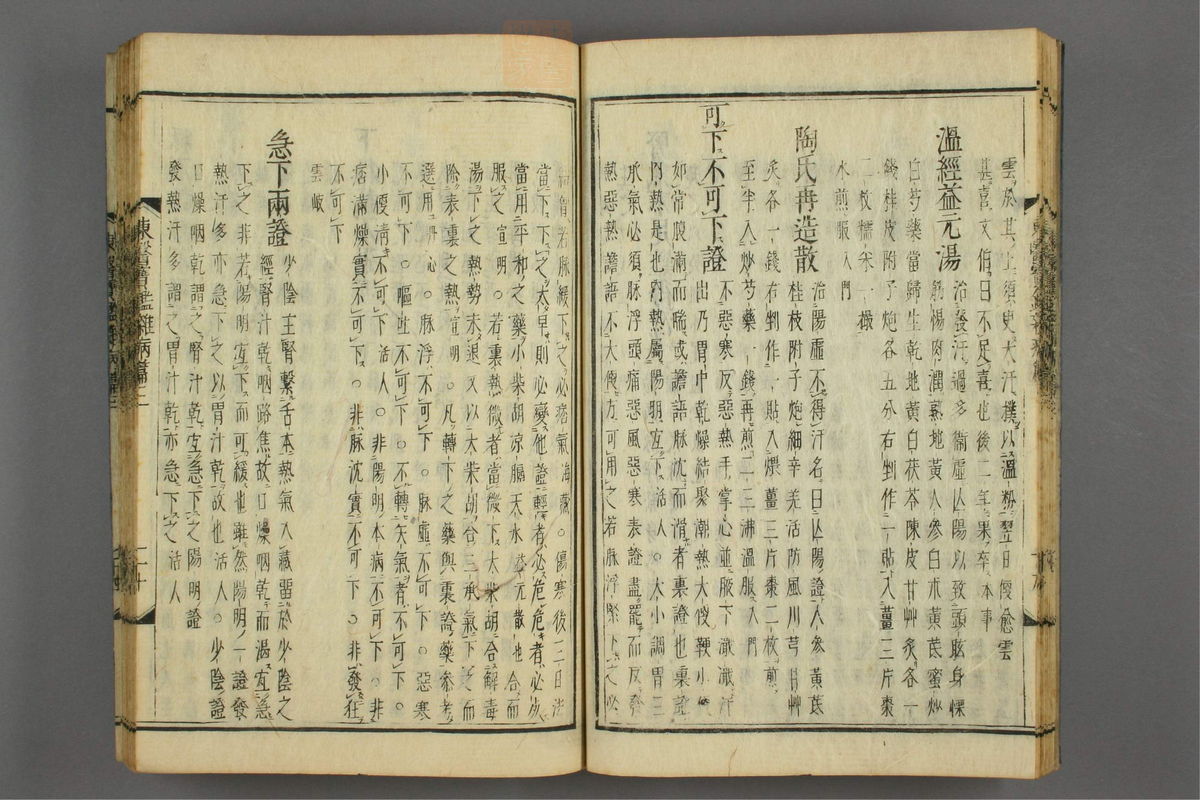 雲於其上須臾大汗撲以溫粉翌日慢愈雲
甚喜文伯曰不足喜也後二年果卒本事
溫經益元湯 治發汗過多衛虛亾陽以致頭眩身慄
筋惕肉潤熟地黃人參白朮黃芪蜜炒
白芍藥當歸生乾地黃白茯苓陳皮甘艸炙各一
錢桂皮附子炮各五分右剉作一貼入薑三片棗
二枚糯米一撮
水煎服入門
陶氏再造散 治陽虛不得汗名曰亾陽證人參黃芪
桂枝附子炮細辛羌活防風川芎甘艸
炙各一錢右剉作一貼入煨薑三片棗二枚煎
至半入炒芍藥一錢再煎二三沸溫服入門
可下不可下證 不惡寒反惡熱手掌心並腋下濈濈汗
出乃胃中乾燥結聚潮熱大便鞕小便
如常腹滿而喘或譫語脉沈而滑者裏證也裏證
內熱是也內熱屬陽明宜下活人○大小調胃三
承氣必須脉浮頭痛惡風惡寒表證盡罷而反發
熱惡熱譫語不大便方可用之若脉浮緊下之必
結胷若脉緩下之必痞氣海藏○傷寒後三日法
當下下之太早則必變他證輕者必危危者必死
當用平和之藥小柴胡涼膈天水益元散也合而
服之宣明○若裏熱微者當微下大柴胡合解毒
湯下之熱勢未退又以大柴胡合三承氣下之而
除表裏之熱宣明○凡轉下之藥與裏證藥參考
選用丹心○脉浮不可下○脉虛不可下○惡寒
不可下○嘔吐不可下○不轉矢氣者不可下○
小便淸不可下活人○非陽明本病不可下○非
痞滿燥實不可下○非脉沈實不可下○非發狂
不可下
雲岐
急下兩證 少陰主腎繫舌本熱氣入藏留於少陰之
經腎汁乾咽路焦故口燥咽乾而渴宜急
下之非若陽明宜下而可緩也雖然陽明一證發
熱汗多亦急下之以胃汁乾故也活人○少陰證
口燥咽乾謂之腎汁乾宜急下之陽明證
發熱汗多謂之胃汁乾亦急下之活人
東醫寶鑑雜病篇二
二十